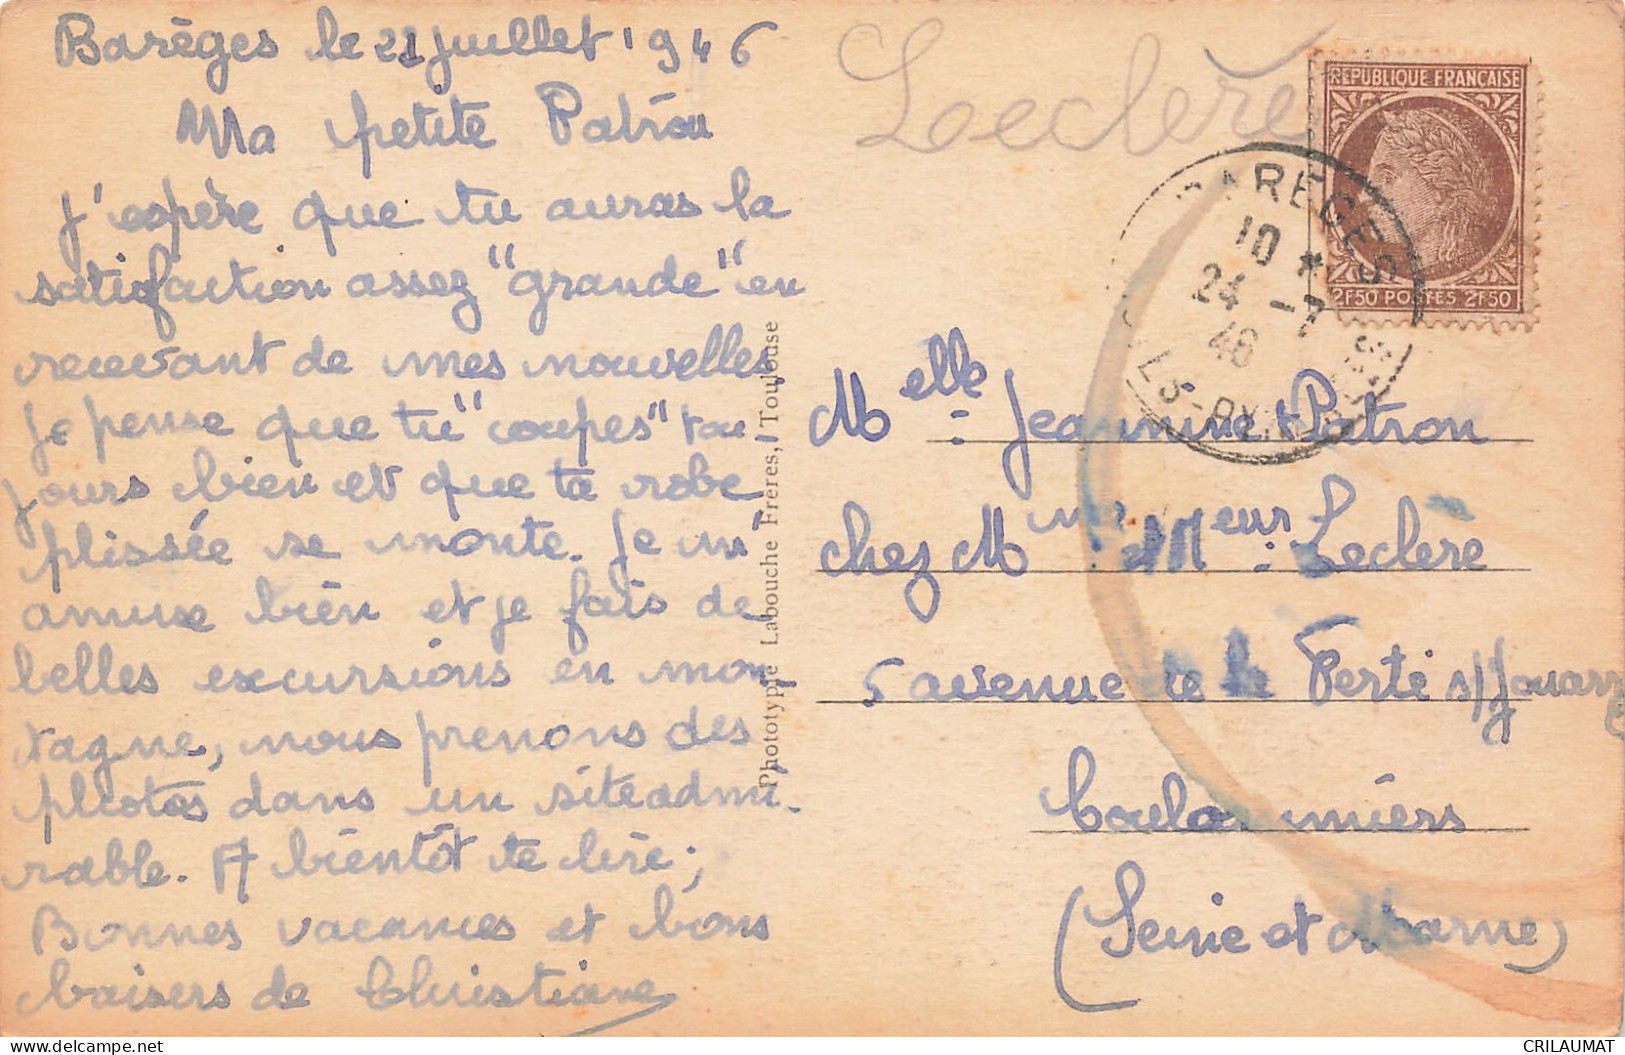 Barèges le 21 juillet 1946
Ma petite Patron
J'espère que tu auras la
satisfaction assez "grande" en
recevant de mes nouvelles
Je pense que tu "coupes" tou
jours bien et que ta robe
plissée se monte. Je m'
amuse bien et je fais de
belles excursions en mon-
tagne, nous prenons des
photos dans un site admi-
rable. A bientôt te lire;
Bonnes vacances et bons
baisers de Christiane
Phototypie Labouche Frères, Toulouse
Leclère
REPUBLIQUE FRANÇAISE
2F50 POSTES 2F50
BAREGES
10 *
24 -7
46
Melle Jeannine Patron
chez Mme Mr Leclere
5 avenue de la Ferté s/Jouarre
Coulommiers
(Seine et Marne)
CRILAUMAT